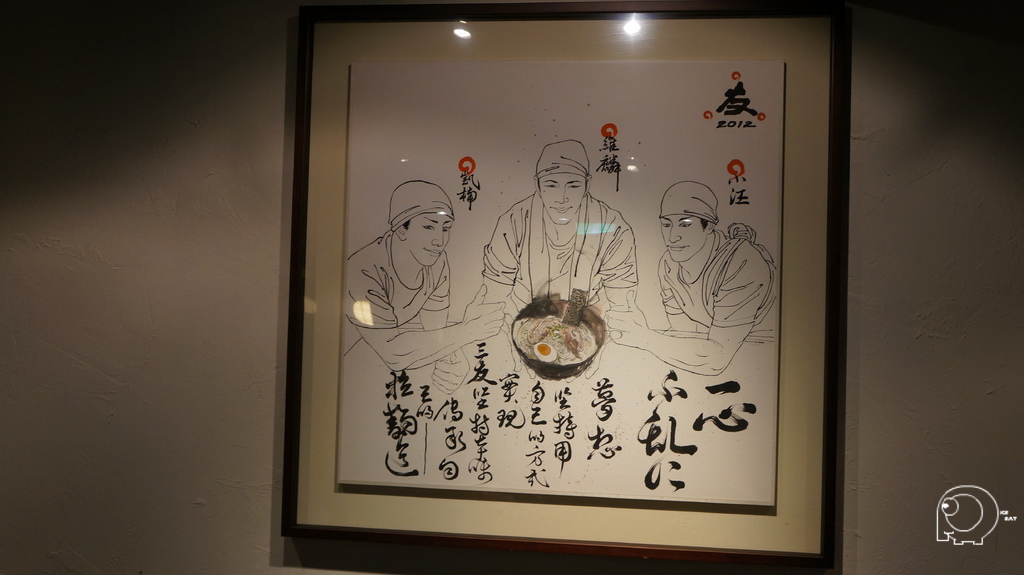 友
2012
小汪
維麟
凱楠
一心
不乱に
夢想
堅持用
自己的方式
實現
三友堅持本味
傳承自
己的一
拉麵道
ICE
BAY